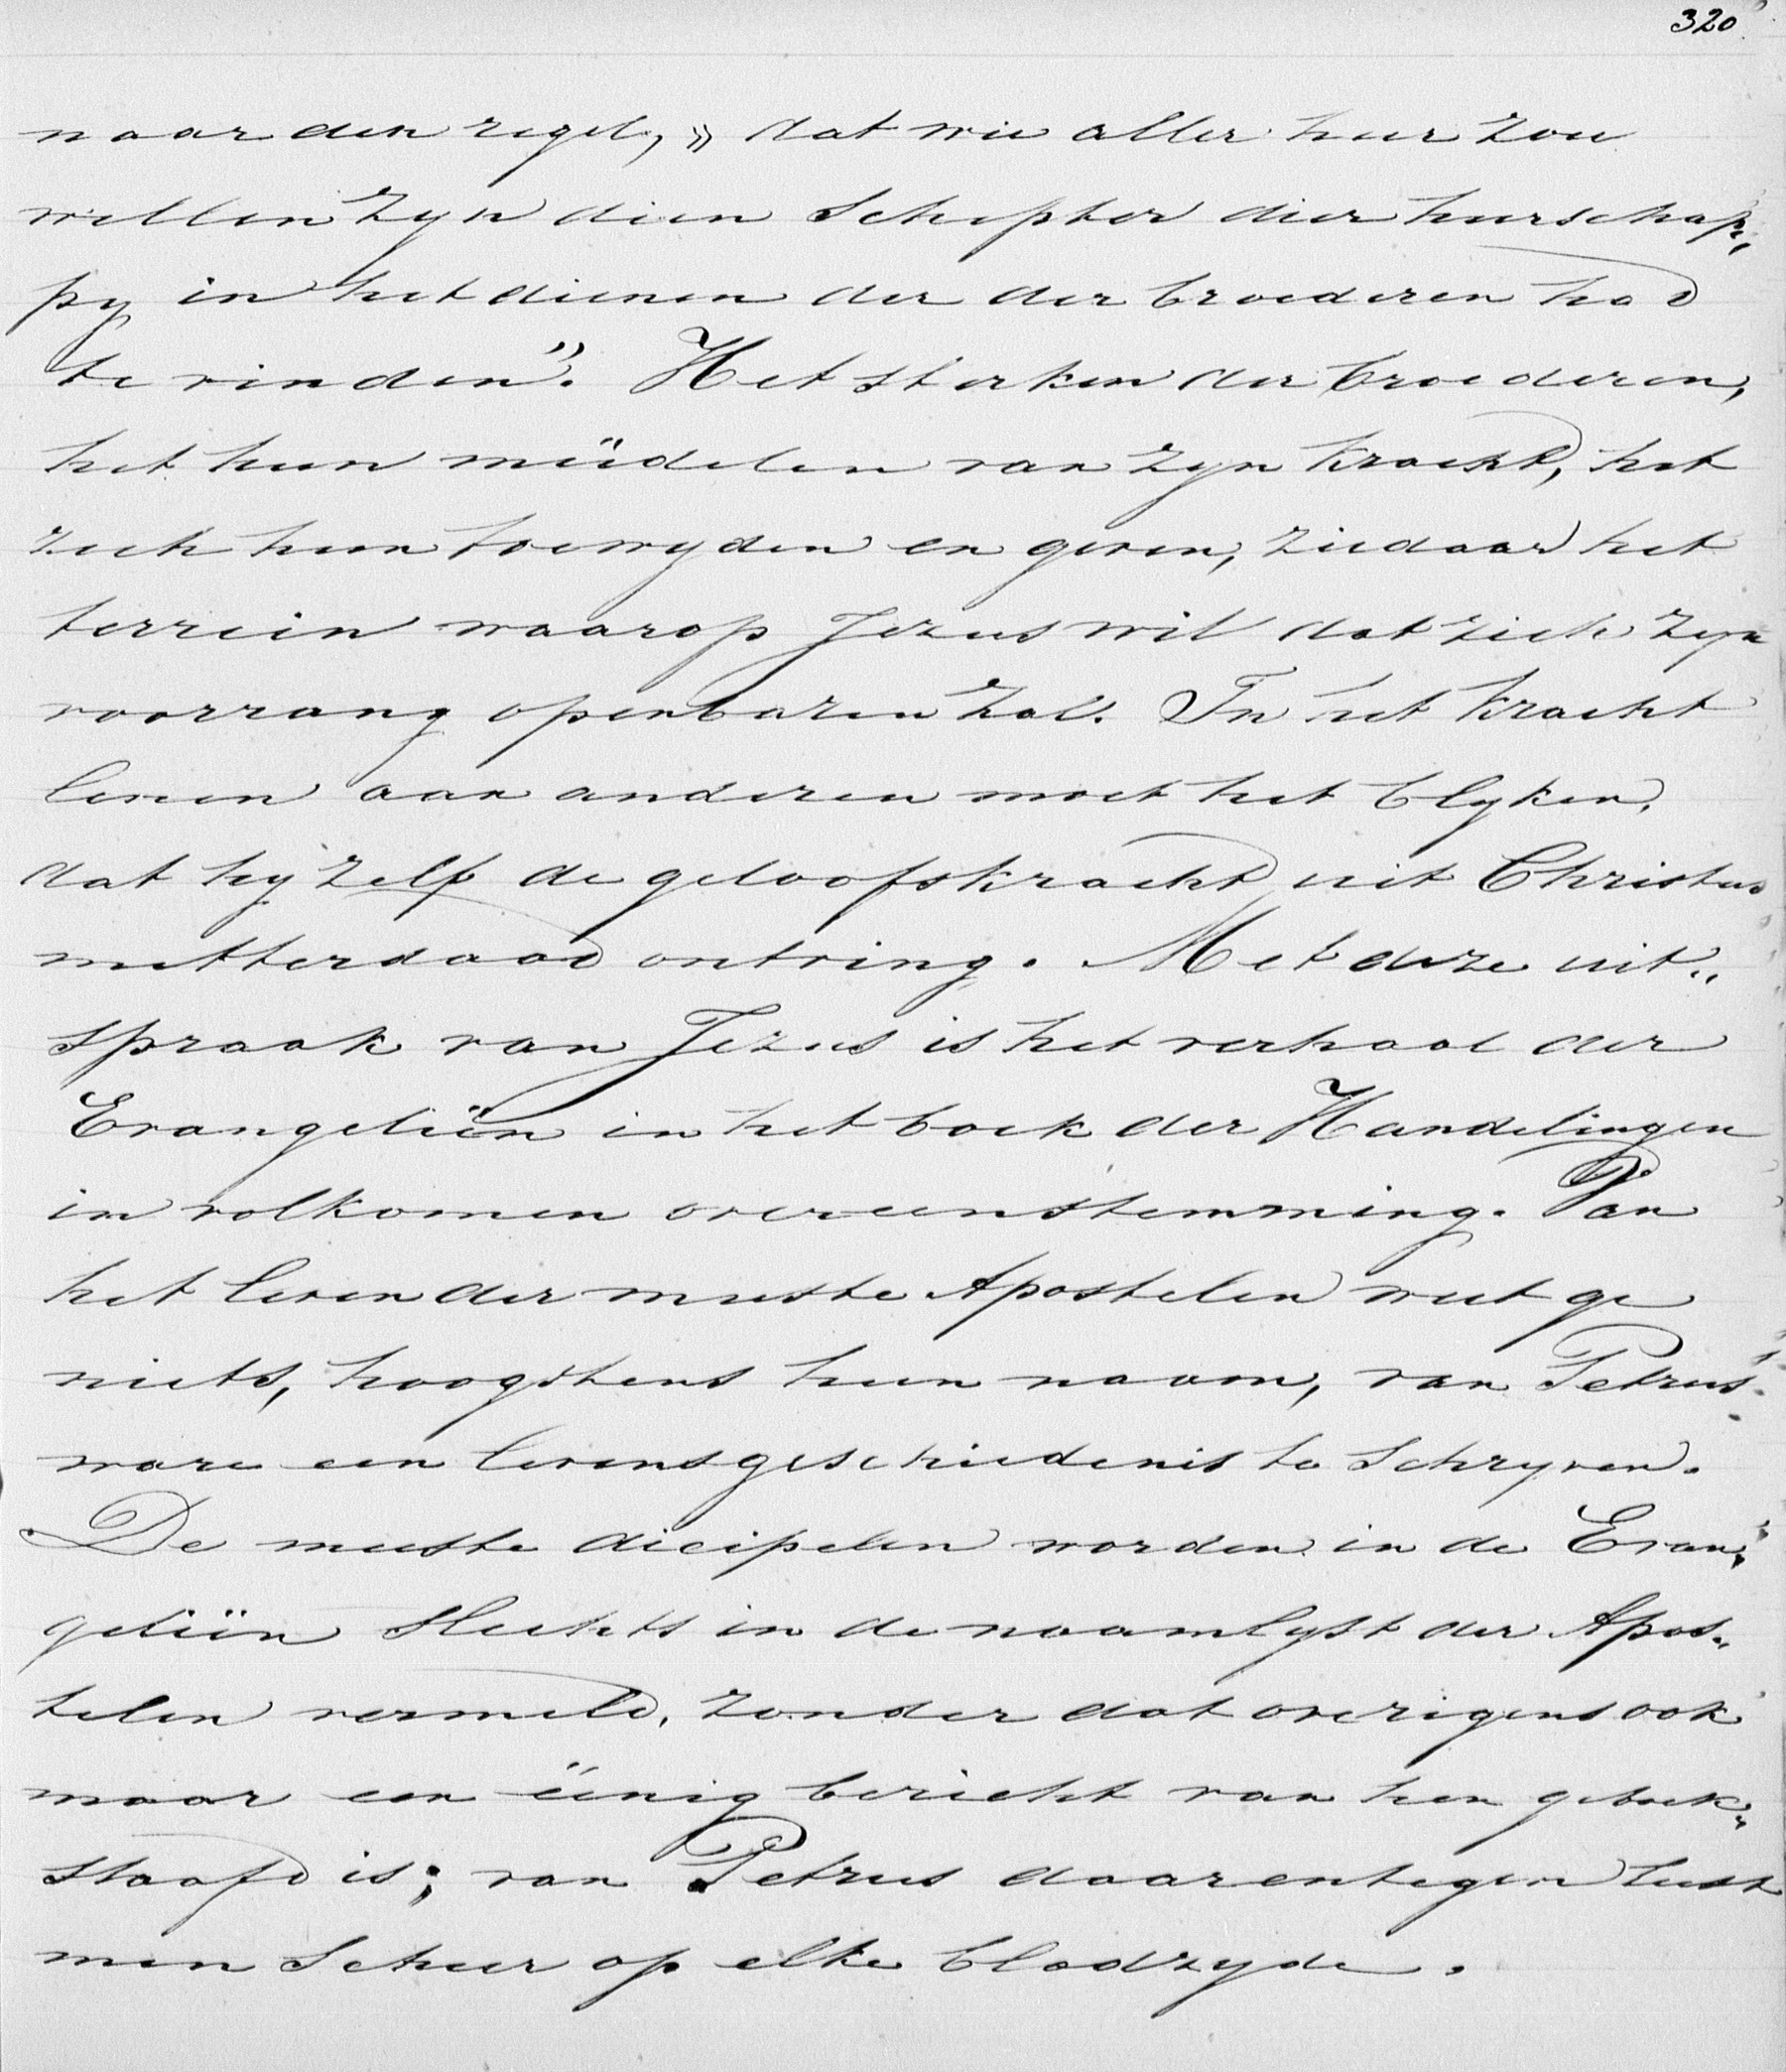 320
naar den regel, „dat wie aller heer zou
willen zyn dien Schepter dier heerschap„
py in het dienen der der broederen had
te vinden”. Het sterken der broederen,
het hun meêdelen van zyn kracht, het
zich hun toewyden en geven, ziedaar het
terrein waarop Jezus wil dat zich zyn
voorrang openbaren zal. In het kracht
leenen aan anderen moet het blyken,
dat hy zelf de geloofskracht uit Christus
metterdaad ontving. Met deze uit„
spraak van Jezus is het verhaal der
Evangeliën in het boek der Handelingen
in volkomen overeenstemming. Van
het leven der meeste Apostelen weet ge
niets, hoogstens hun naam, van Petrus
ware een levensgeschiedenis te schryven.
De meeste dicipelen worden in de Evan„
geliën slechts in de naamlyst der Apos„
telen vermeld, zonder dat overigens ook
maar een éénig bericht van hen geboek„
staafd is; van Petrus daarentegen leest
men scheer op elke bladzyde.